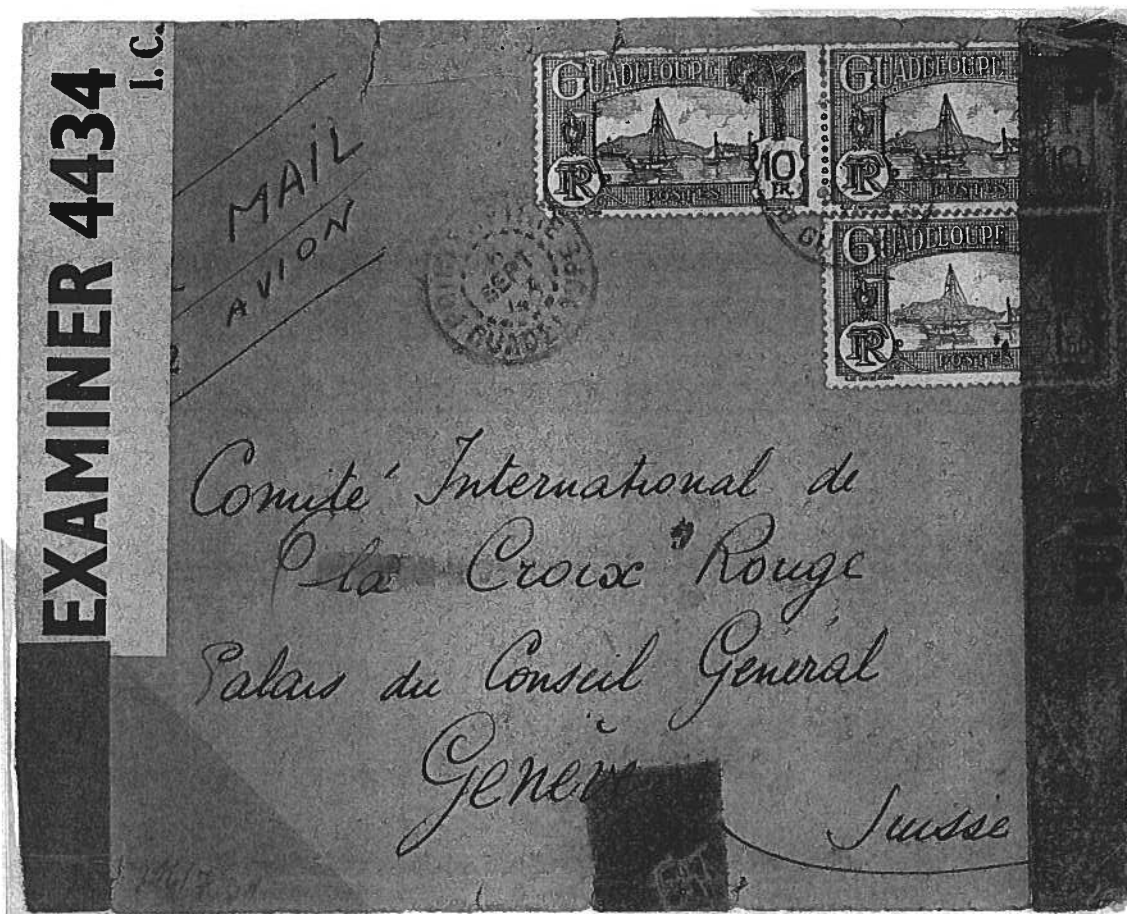 EXAMINER 4434
I.C.
MAIL
AVION
GUADELOUPE
RF
10
FR
POSTES
GUADELOUPE
RF
10
POSTES
GUADELOUPE
RF
POSTES
SEPT
Comité International de
la Croix Rouge
Palais du Conseil Général
Genèv
Suisse